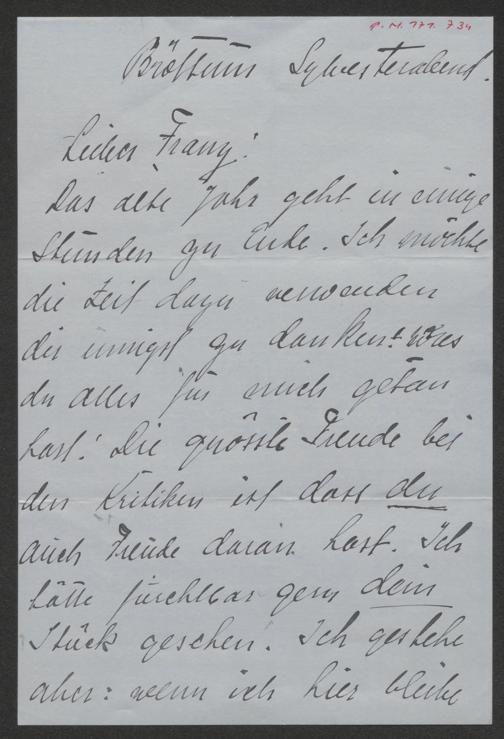 P.N. 171. 734
Bröttum Sylvesterabend.
Lieber Franz!
Das alte Jahr geht in einige
Stunden zu Ende. Ich möchte
die Zeit dazu verwenden
dir innigst zu danken! was
du alles für mich getan
hast! Die grösste Freude bei
den Kritiken ist dass du
auch Freude daran hast. Ich
hätte furchtbar gern dein
Stück gesehen! Ich gestehe
aber: wenn ich hier bleibe